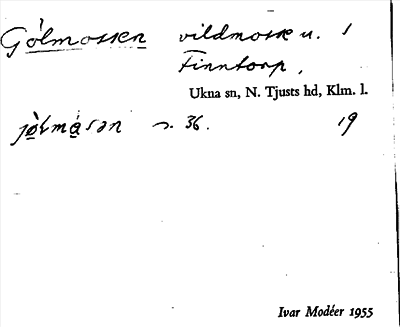 Gölmossen vildmosse u. 1
Finntorp,
Ukna sn, N. Tjusts hd, Klm. l.
jø̀lmå̀sən s. 36. 19
Ivar Modéer 1955